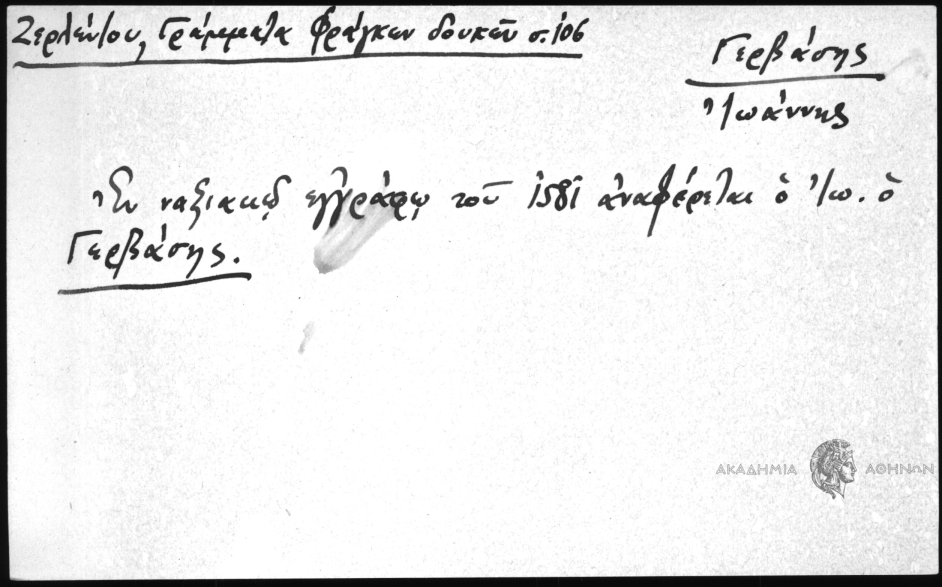 Ζερλέντου, Γράμματα Φράγκων δουκῶν σ. 106
Γερβάσης
Ἰωάννης
Ἐν ναξιακῷ ἐγγράφῳ τοῦ 1581 ἀναφέρεται ὁ Ἰω. ὁ
Γερβάσης.
ΑΚΑΔΗΜΙΑ ΑΘΗΝΩΝ